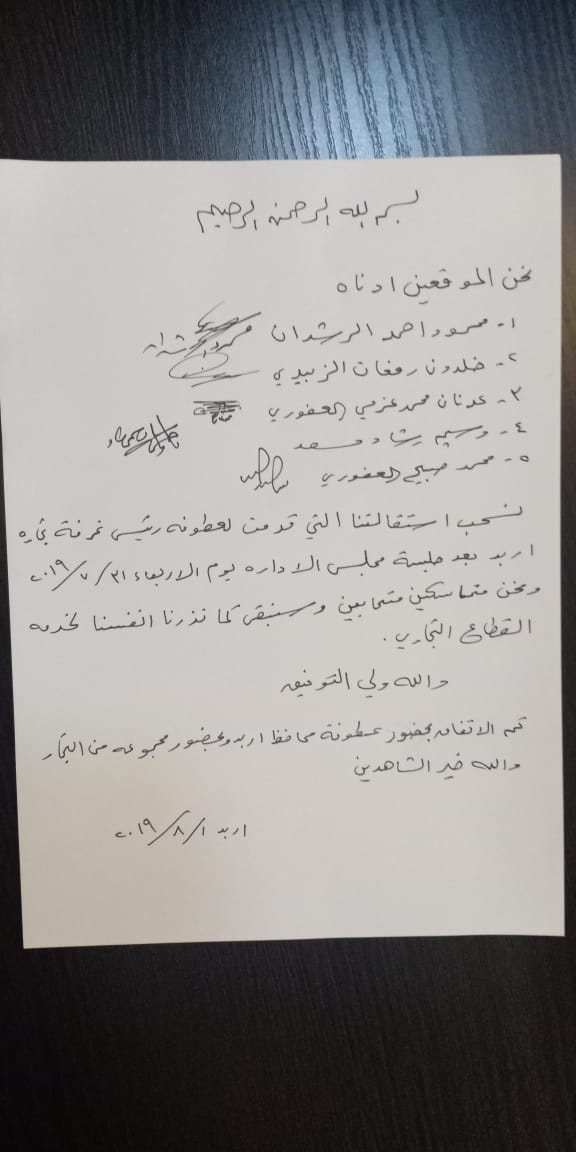 بسم الله الرحمن الرحيم
نحن الموقعين ادناه
١- محمود احمد الرشدان
٢- خلدون رفعات الزبيدي
٣- عدنان محمد عزمي العفوري
٤- وسيم رشاد مسعد
٥- محمد صبحي العفوري
نسحب استقالتنا التي قدمت لعطوفه رئيس غرفة تجاره
اربد بعد جلسة مجلس الاداره يوم الاربعاء ٣١/٧/٢٠١٩
ونحن متماسكين متحابين وسنبقى كما نذرنا انفسنا لخدمه
القطاع التجاري.
والله ولي التوفيق
تم الاتفاق بحضور عطوفة محافظ اربد وبحضور مجموعه من التجار
والله خير الشاهدين
اربد ١/٨/٢٠١٩